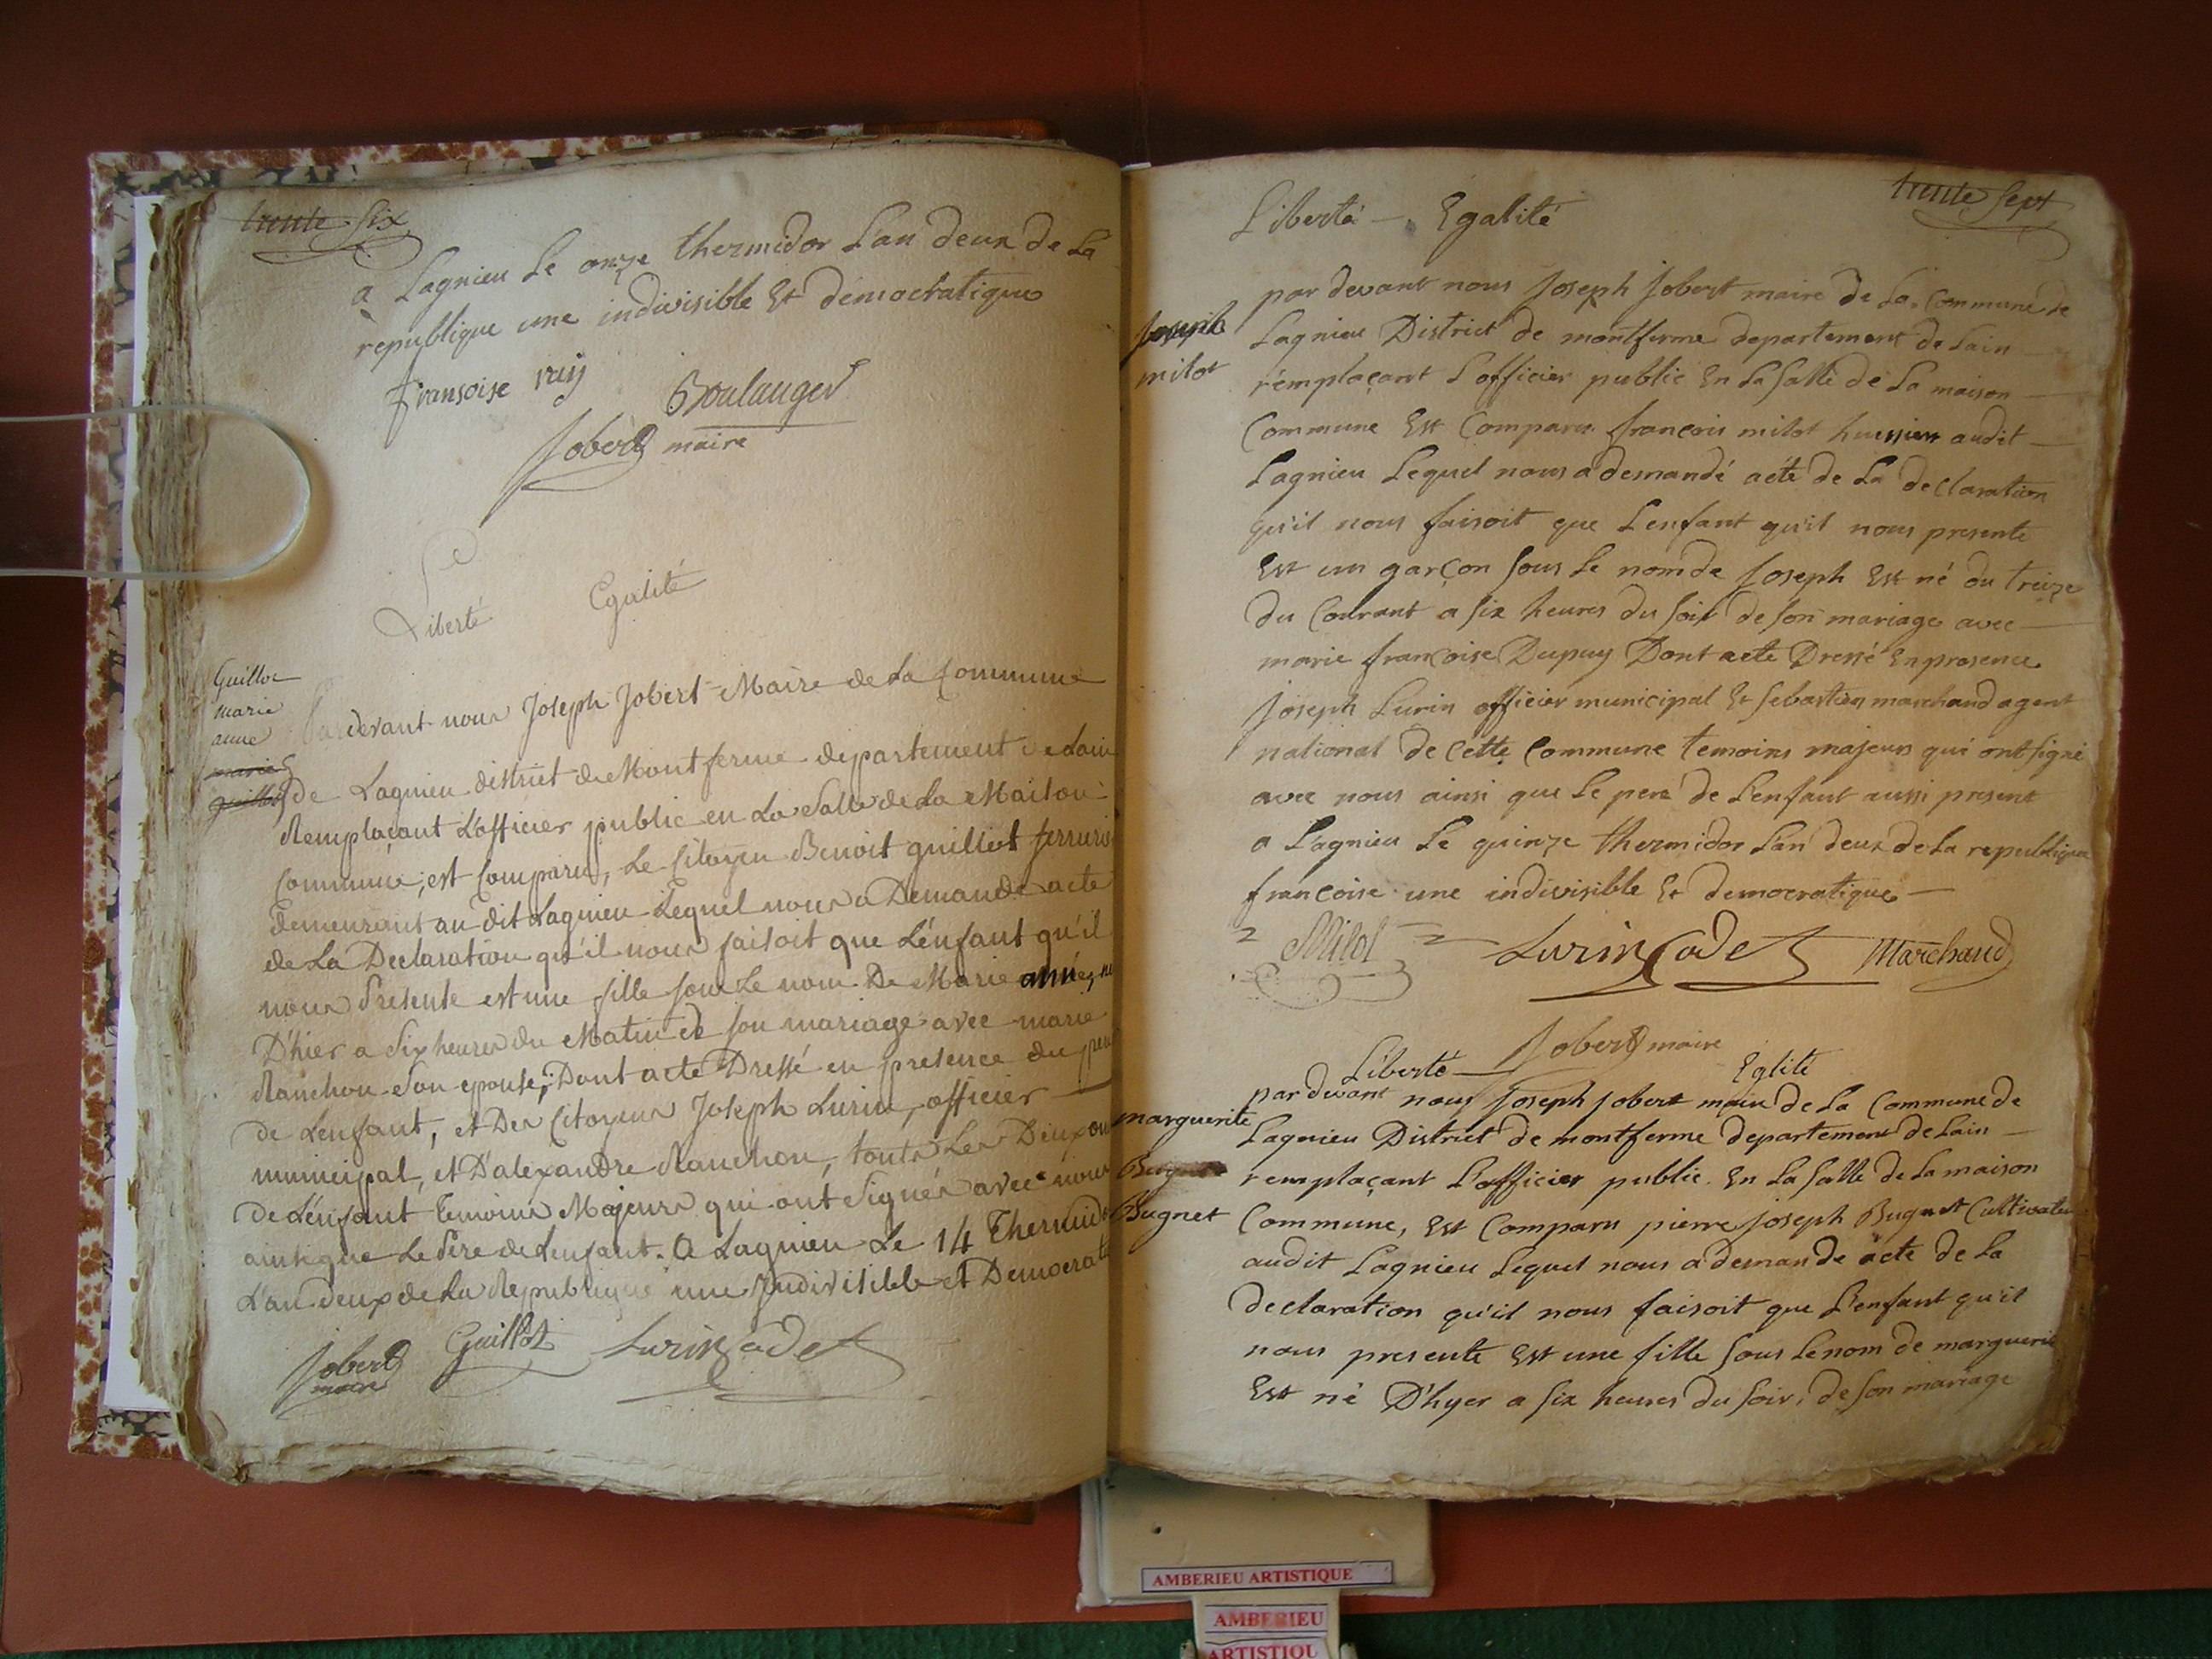 trente six
a Lagnieu le onze thermidor l'an deux de la
republique une indivisible Et democratique
fransoise ruy Boulanger
Jobert maire
Liberté Egalité
Guillot
marie
anne
marie
guillot
Pardevant nous Joseph Jobert Maire de la Commune
de Lagnieu district de Montferme departement de Lain
Remplaçant L'officier public en La Salle de La Maison
Commune, est Comparu, Le Citoyen Benoit guillot
demeurant au dit Lagnieu Lequel nous a Demandé acte
de La Declaration qu'il nous faisoit que L'énfant qu'il
nous Presente est une fille sous Le nom De Marie anne, né
D'hier a Six heures du Matin de son mariage avec marie
Ranchon son epouse, Dont acte Dressé en presence du pere
de L'enfant, et Des Citoyens Joseph Lurin, officier
municipal, et D'alexandre Ranchon, touts Les Deux
De L'énfant temoins Majeurs qui ont Signés avec nous
ainsi que Le Pere de L'enfant. A Lagnieu Le 14 Thermidor
L'an deux de La Republique une Indivisible et Democrate
Jobert maire Guillot Lurin Cadet
trente sept
Liberté - Egalité
Joseph
milot
par devant nous Joseph Jobert maire de La Commune de
Lagnieu District de montferme departement de Lain
remplaçant L'officier public En La Salle de La maison
Commune Est Comparu françois milot huissier audit
Lagnieu Lequel nous a demandé acte de La declaration
qu'il nous faisoit que L'enfant qu'il nous presente
Est un garçon sous Le nom de Joseph Est né du treize
du Courant a six heures du soir de son mariage avec
marie françoise Dupuy Dont acte Dressé En presence
Joseph Lurin officier municipal Et Sebastien marchand agent
national de Cette Commune temoins majeurs qui ont signé
avec nous ainsi que Le pere de L'enfant aussi present
a Lagnieu Le quinze thermidor L'an deux de La republique
françoise une indivisible Et democratique
Milot Lurin Cadet Marchand
Jobert maire
Liberté Eglite
marguerite
Bugnet
par devant nous Joseph Jobert maire de La Commune de
Lagnieu District de montferme departement de Lain
remplaçant L'officier public En La Salle de La maison
Commune, Est Comparu pierre Joseph Bugnet Cultivateur
audit Lagnieu Lequel nous a demandé acte de La
declaration qu'il nous faisoit que L'enfant qu'il
nous presente Est une fille sous Le nom de marguerite
Est né D'hyer a six heures du soir, de son mariage
AMBERIEU ARTISTIQUE
AMBERIEU
ARTISTIQU